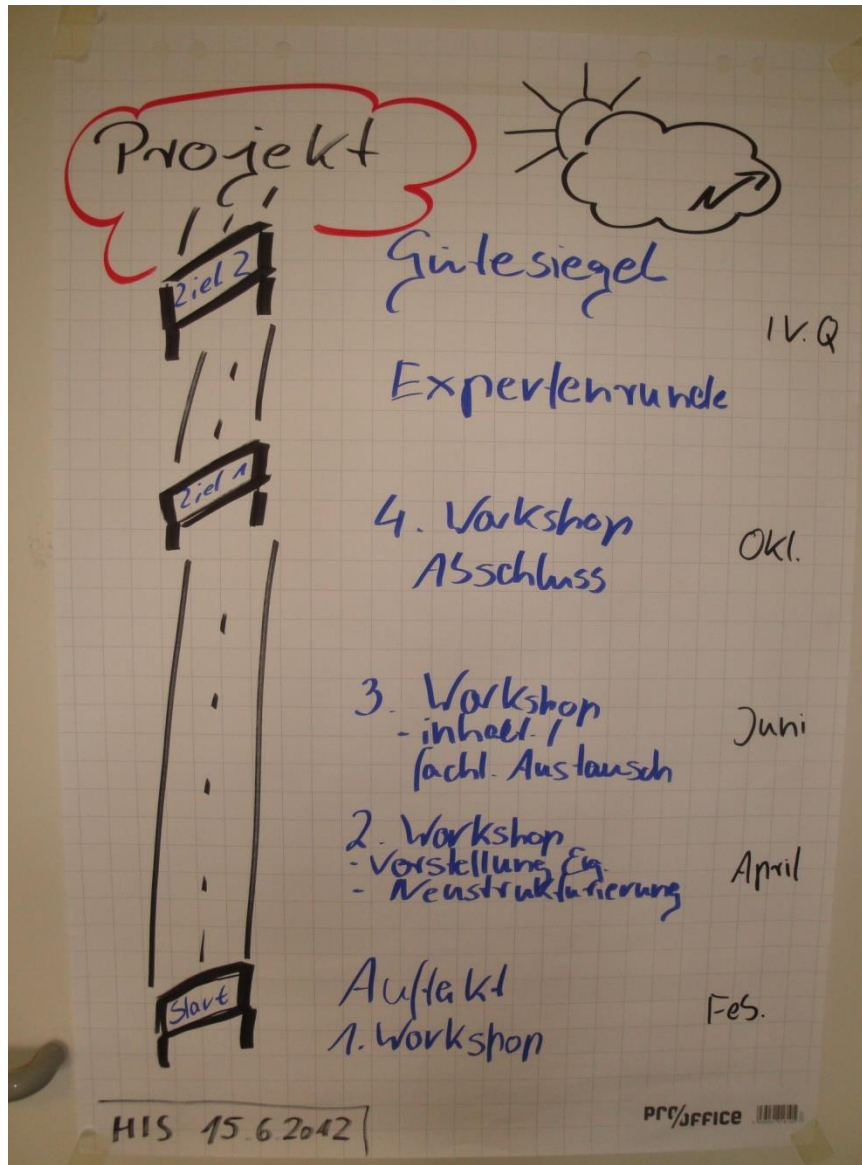 Projekt
Ziel 2
Gütesiegel
IV.Q
Expertenrunde
Ziel 1
4. Workshop
Abschluss
Okt.
3. Workshop
- inhaltl. /
fachl. Austausch
Juni
2. Workshop
- Vorstellung Erg.
- Neustrukturierung
April
Start
Auftakt
1. Workshop
Feb.
HIS 15.6.2012
PRO/OFFICE